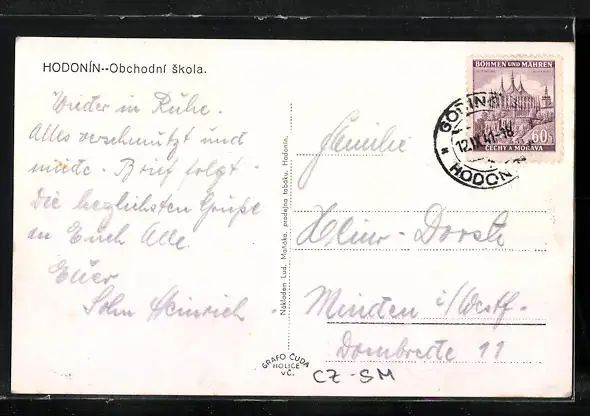 HODONÍN--Obchodní škola.
Wieder in Ruhe.
Alles verschmutzt und
müde. Brief folgt.
Die herzlichsten Grüße
an Euch Alle.
Euer
Sohn Heinrich.
Nákladem Lud. Maňáka, prodejna tabáku, Hodonín.
GRAFO ČUDA
HOLICE
V Č.
BÖHMEN UND MÄHREN
60
ČECHY A MORAVA
GÖDING
12. 41-18
HODON
Familie
Minden i/Westf.
Dombrede 11
CZ-SM